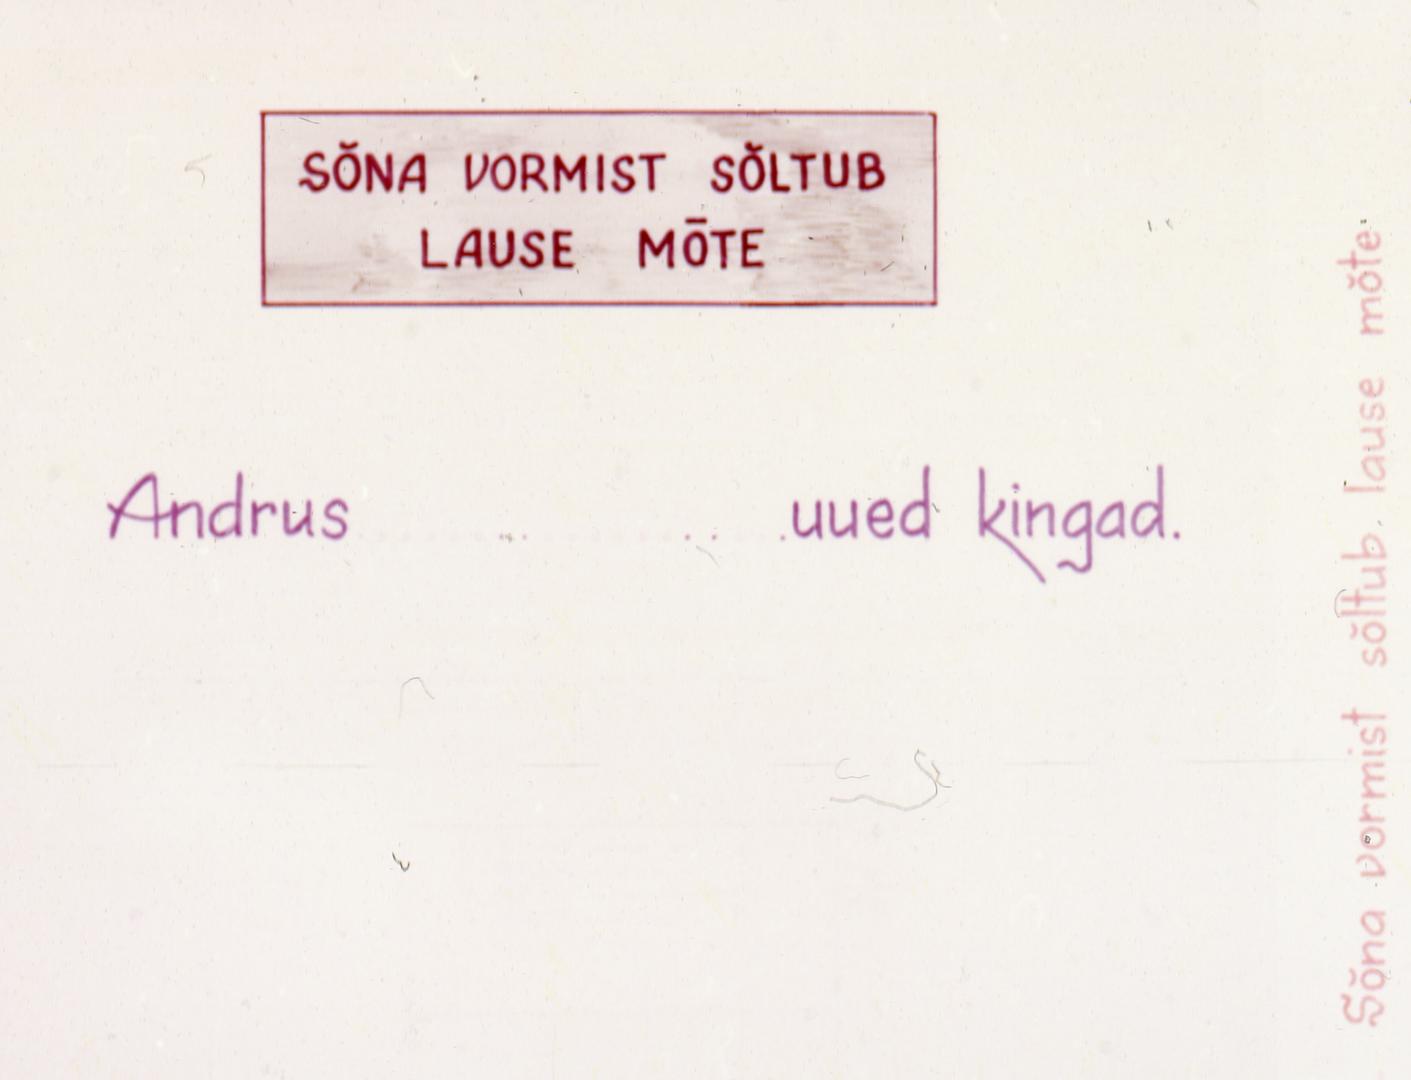 SÕNA VORMIST SÕLTUB
LAUSE MÕTE
Andrus . . . . . . . . . . . uued kingad.
Sõna vormist sõltub lause mõte